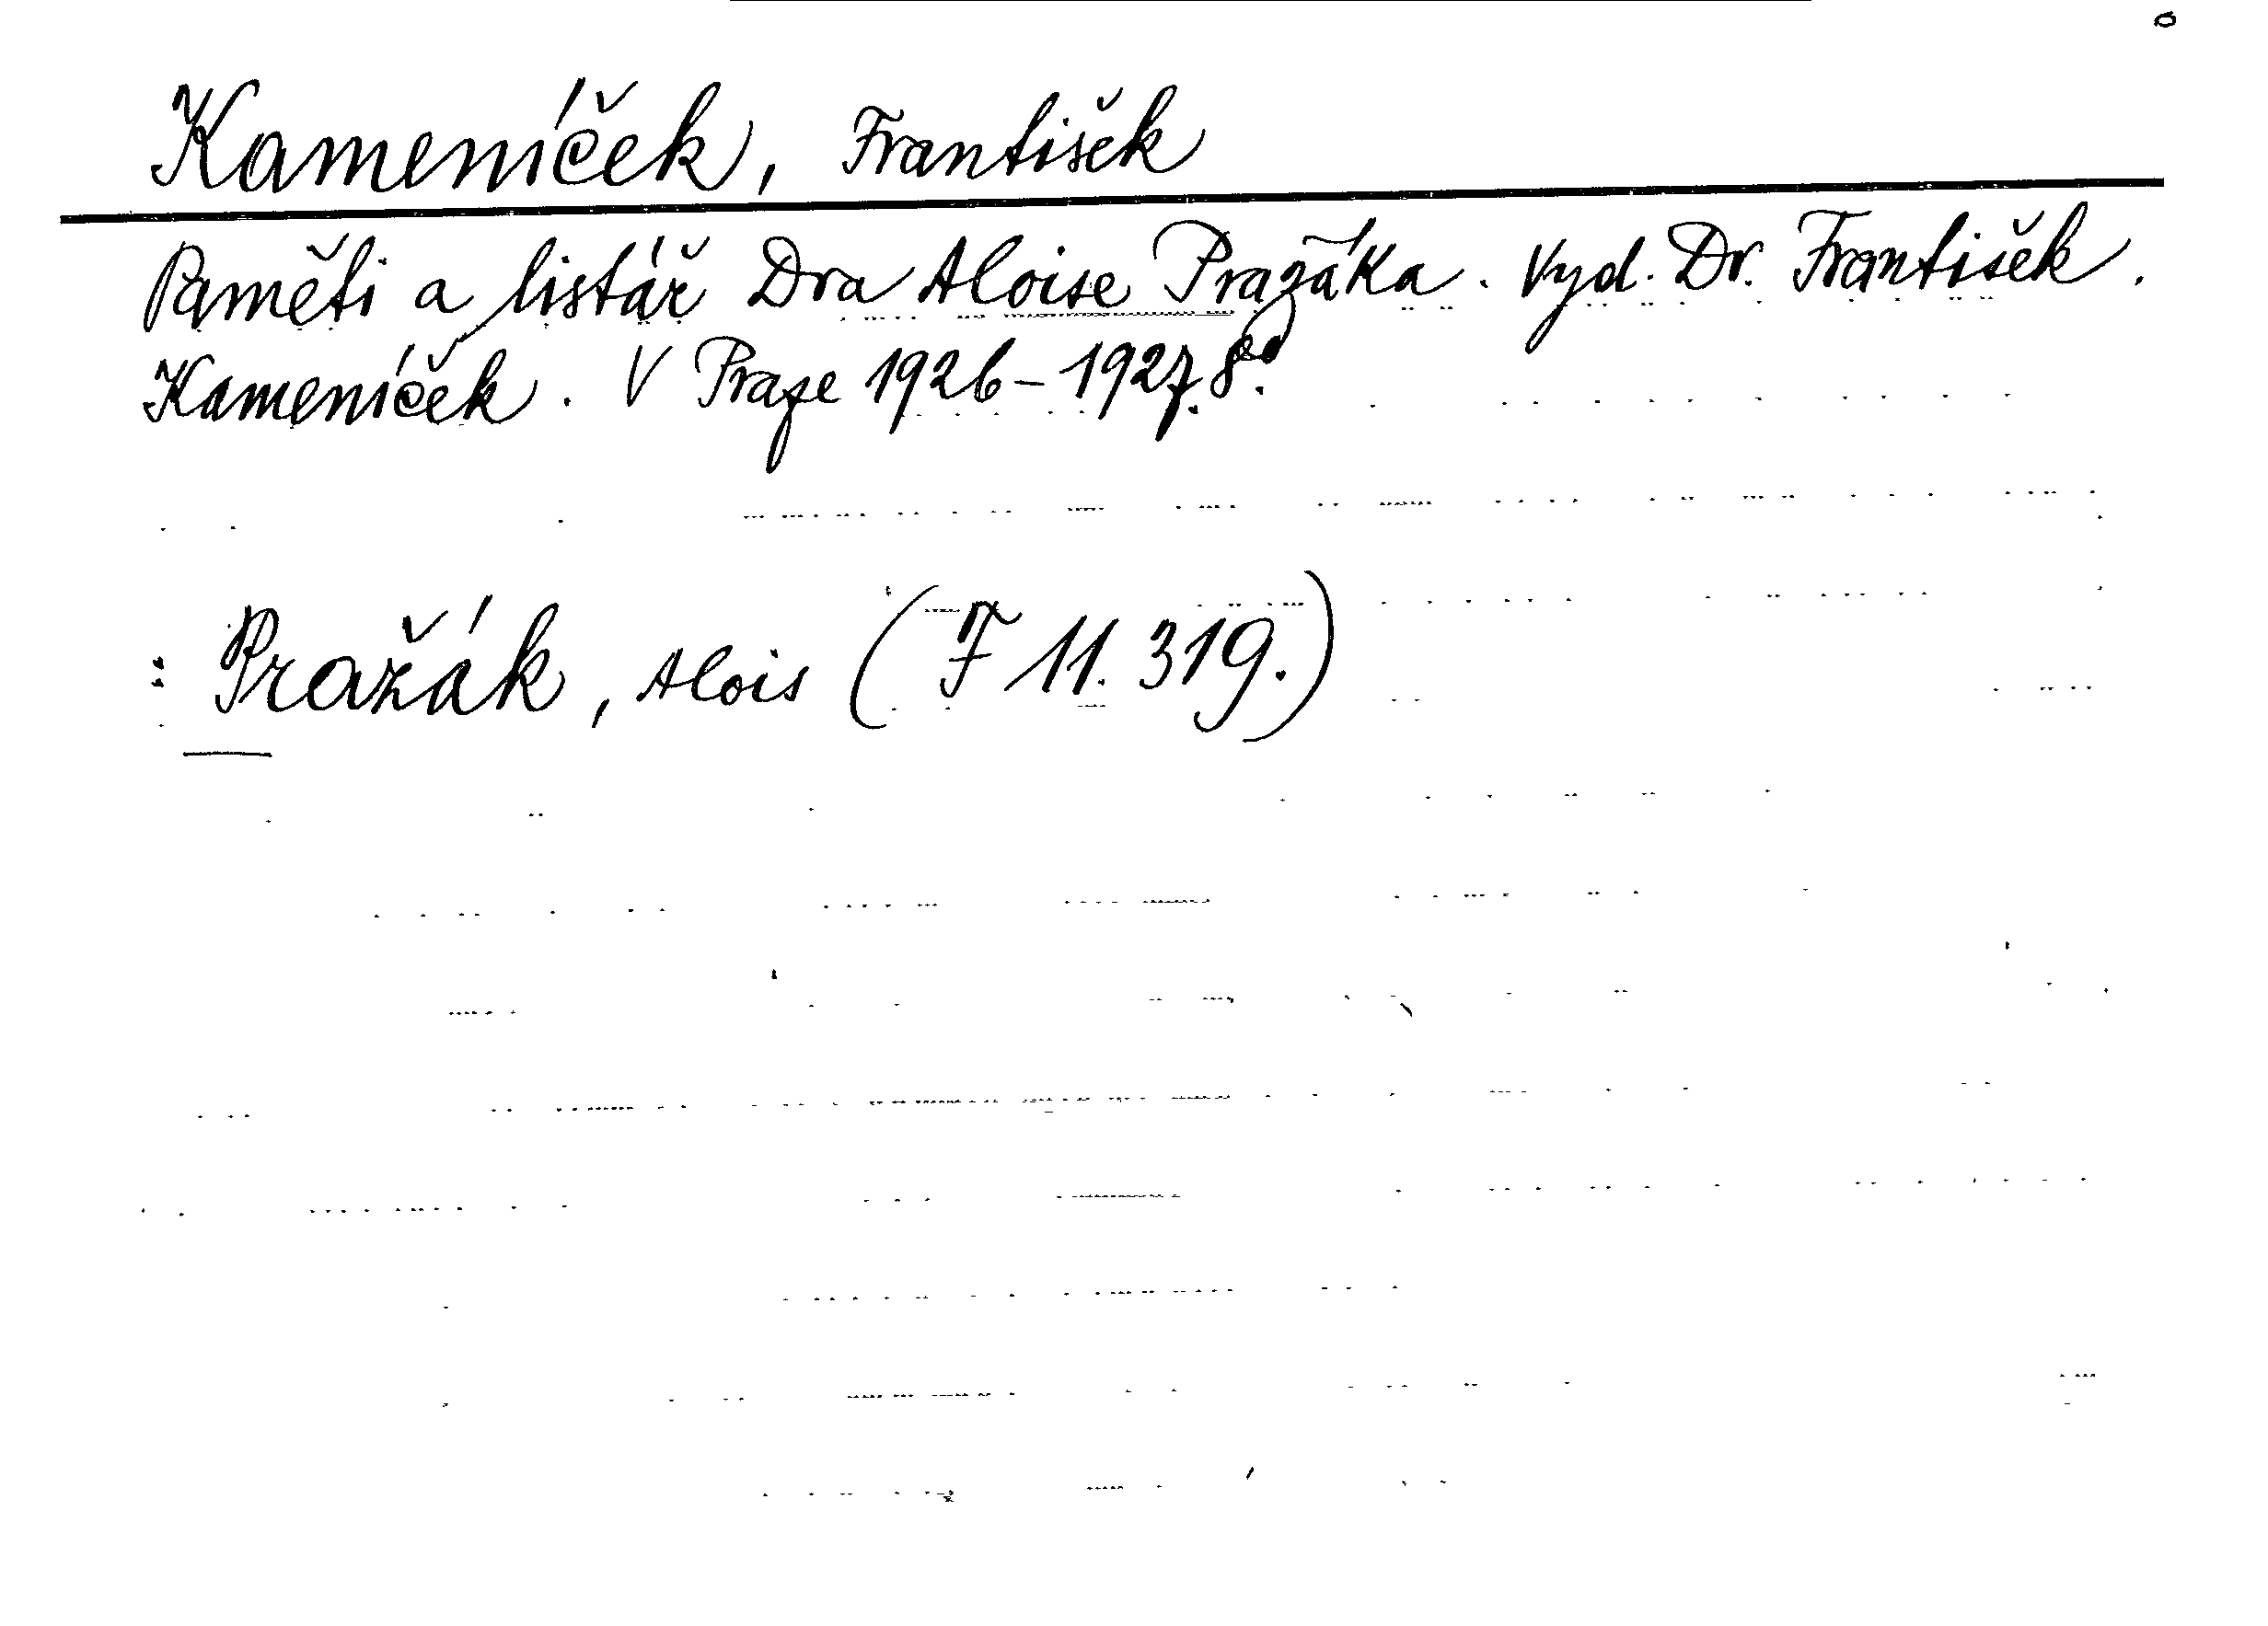 Kameníček, František
Paměti a listář Dra Aloise Pražáka. Vyd. Dr. František
Kameníček. V Praze 1926-1927. 8°.
: Pražák, Alois (F 11.319.)